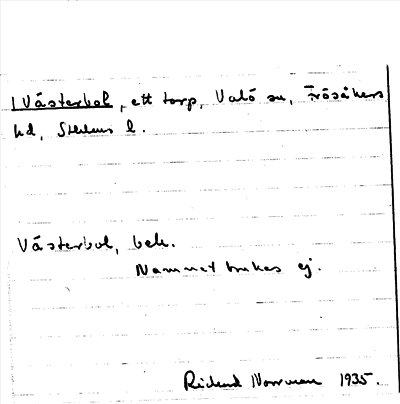 I Västerbol, ett torp, Valö sn, Frösåkers
hd, Sthlms l.
Västerbol, bek.
Namnet brukas ej.
Richard Norrman 1935.